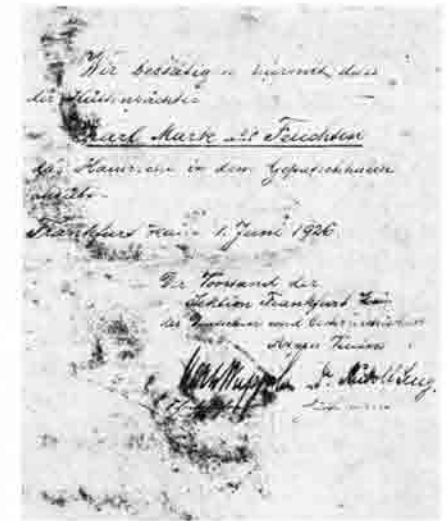 Wir bestätigen hiermit, dass
der Hüttenwächter
Karl Mark aus Feuchten
das Hausrecht in dem Gepatschhaus
ausübt.
Frankfurt Main 1. Juni 1926.
Der Vorstand der
Sektion Frankfurt Main
des Deutschen und Oesterreichischen
Alpen Vereins
Dr. Rudolf Seng